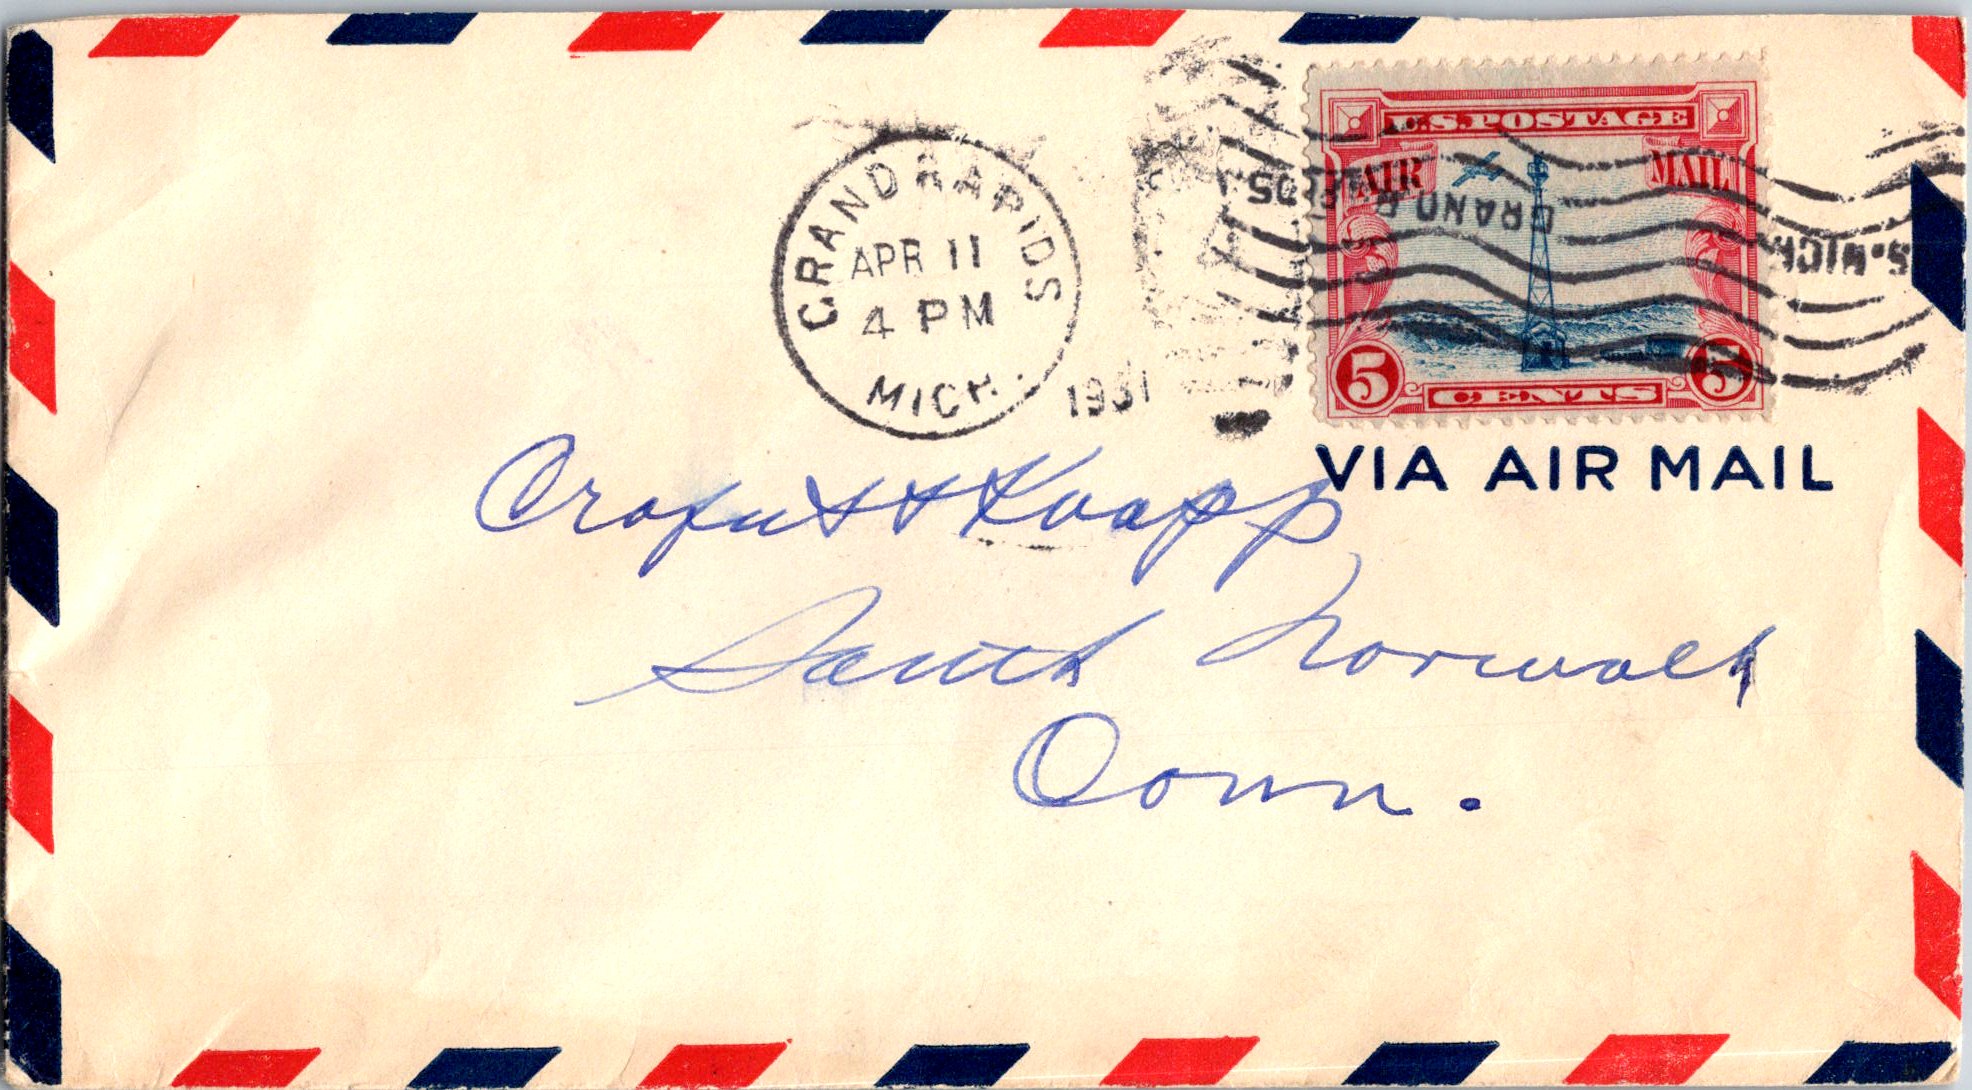 GRAND RAPIDS
APR 11
4 PM
MICH.
1931
U.S. POSTAGE
AIR MAIL
GRAND RAPIDS
S. MICH.
5 CENTS 5
VIA AIR MAIL
Crofut & Knapp
South Norwalk
Conn.